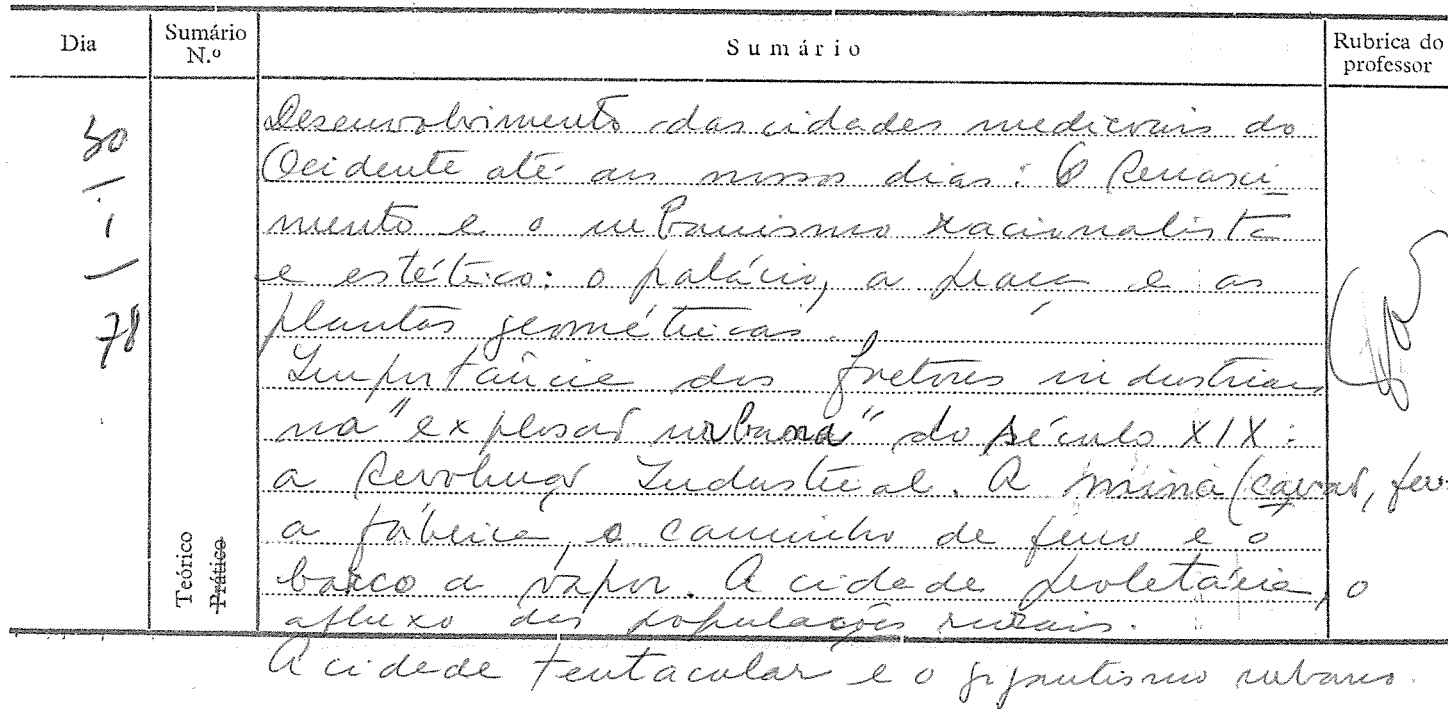 Dia Sumário N.º Sumário Rubrica do professor
30
1
78
Desenvolvimento das cidades medievais do
Ocidente até aos nossos dias: O Renasci-
mento e o urbanismo racionalista
e estético: o palácio, a praça e as
plantas geométricas.
Importância dos factores industriais
na "explosão urbana" do século XIX:
a Revolução Industrial. A mina (carvão, ferro
a fábrica, o caminho de ferro e o
barco a vapor. A cidade proletária, o
afluxo das populações rurais.
A cidade tentacular e o gigantismo urbano.
Teórico
Prático